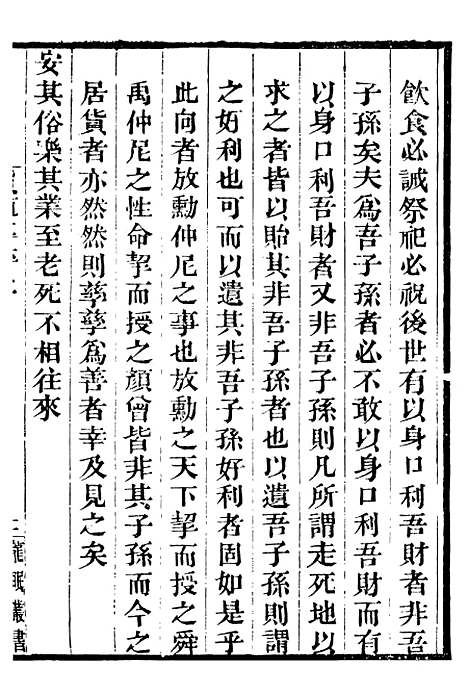 飲食必誡祭祀必祝後世有以身口利吾財者非吾
子孫矣夫為吾子孫者必不敢以身口利吾財而有
以身口利吾財者又非吾子孫則凡所謂走死地以
求之者皆以貽其非吾子孫者也以遺吾子孫則謂
之好利也可而以遺其非吾子孫好利者固如是乎
此向者放勳仲尼之事也放勳之天下挈而授之舜
禹仲尼之性命挈而授之顏曾皆非其子孫而今之
居貨者亦然然則孳孳為善者幸及見之矣
安其俗樂其業至老死不相往來
龍眠叢書